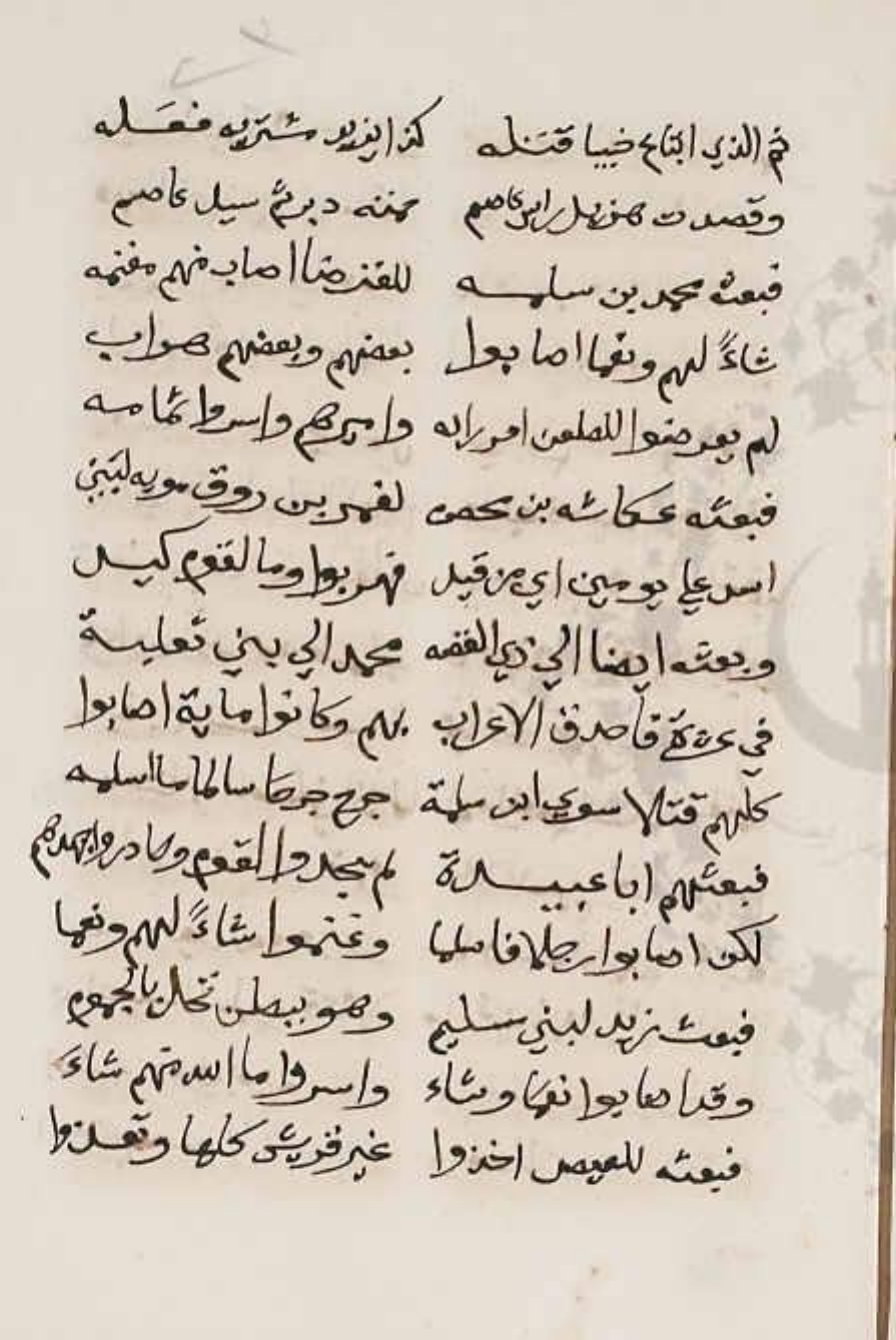 ثم الذي ابتاع خبيبا قتله كذا يزيد مشتريه فعله
وقصدت هزيل راس عاصم حمته دبر ثم سيل عاصم
فبعث محمد بن سلمه للقرضا اصاب منهم مغنمه
شاءً لهم ونعما اصابوا بعضهم وبعضهم هواب
لم يعرضوا للظعن امر رابه واميرهم واسروا ثمامه
فبعثه عكاشه بن محصن لغمر بن روق مويه لبني
اسد علي يومين اي من قيل فهربوا وما لقوم كيل
وبعثه ايضا الي ذي القصه محمد الي بني ثعلبة
في عشرة قاصدق الاعراب بهم وكانوا ماية اصابوا
كلهم قتلا سوي ابن سلمة جرح جرحا سالما ما اسلمه
فبعثهم ابا عبيدة لم يجدوا القوم وحادروا
لكن اصابوا رجلا فاسلما وغنموا شاءً لهم ونعما
فبعث زيد لبني سليم وهو ببطن نخل بالجموم
وقد اصابوا نعما وشاء واسروا ما الله منهم شاءَ
فبعثه للعيص اخذوا غير قريش كلها ونفذوا